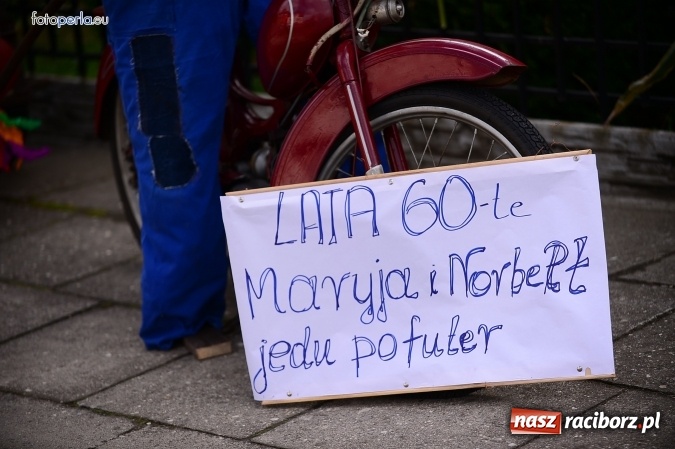 fotoperla.eu
LATA 60-te
Maryja i NorbeRt
jedu po futer
nasz raciborz.pl